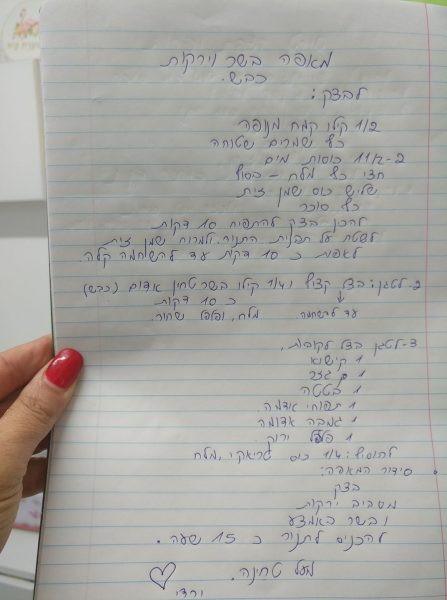 מאפה בשר וירקות
כבש.
לבצק:
1/2 קילו קמח מנופה
כף שמרים שטוחה
1 1/2-2 כוסות מים
חצי כף מלח - בסוף
שליש כוס שמן זית
כף סוכר
להכין בצק להתפיח 10 דקות
לשטח על תבנית התנור ולמרוח שמן זית
לאפות כ 10 דקות עד להשחמה קלה.
2-לטגן: בצל קצוץ ו1/4 קילו בשר טחון אדום (כבש)
כ 10 דקות
עד להשחמה. מלח, ופלפל שחור.
3-לטגן בצל לקוביות,
1 קישוא
1 גזר
1 בטטה
1 תפוחי אדמה.
1 גמבה אדומה
1 פלפל ירוק.
להוסיף: 1/4 כוס טריאקי, מלח
• סידור המאפה:
בצק
מסביב ירקות
ובשר באמצע
להכניס לתנור כ 15 שעה.
מעל טחינה.
ורדי